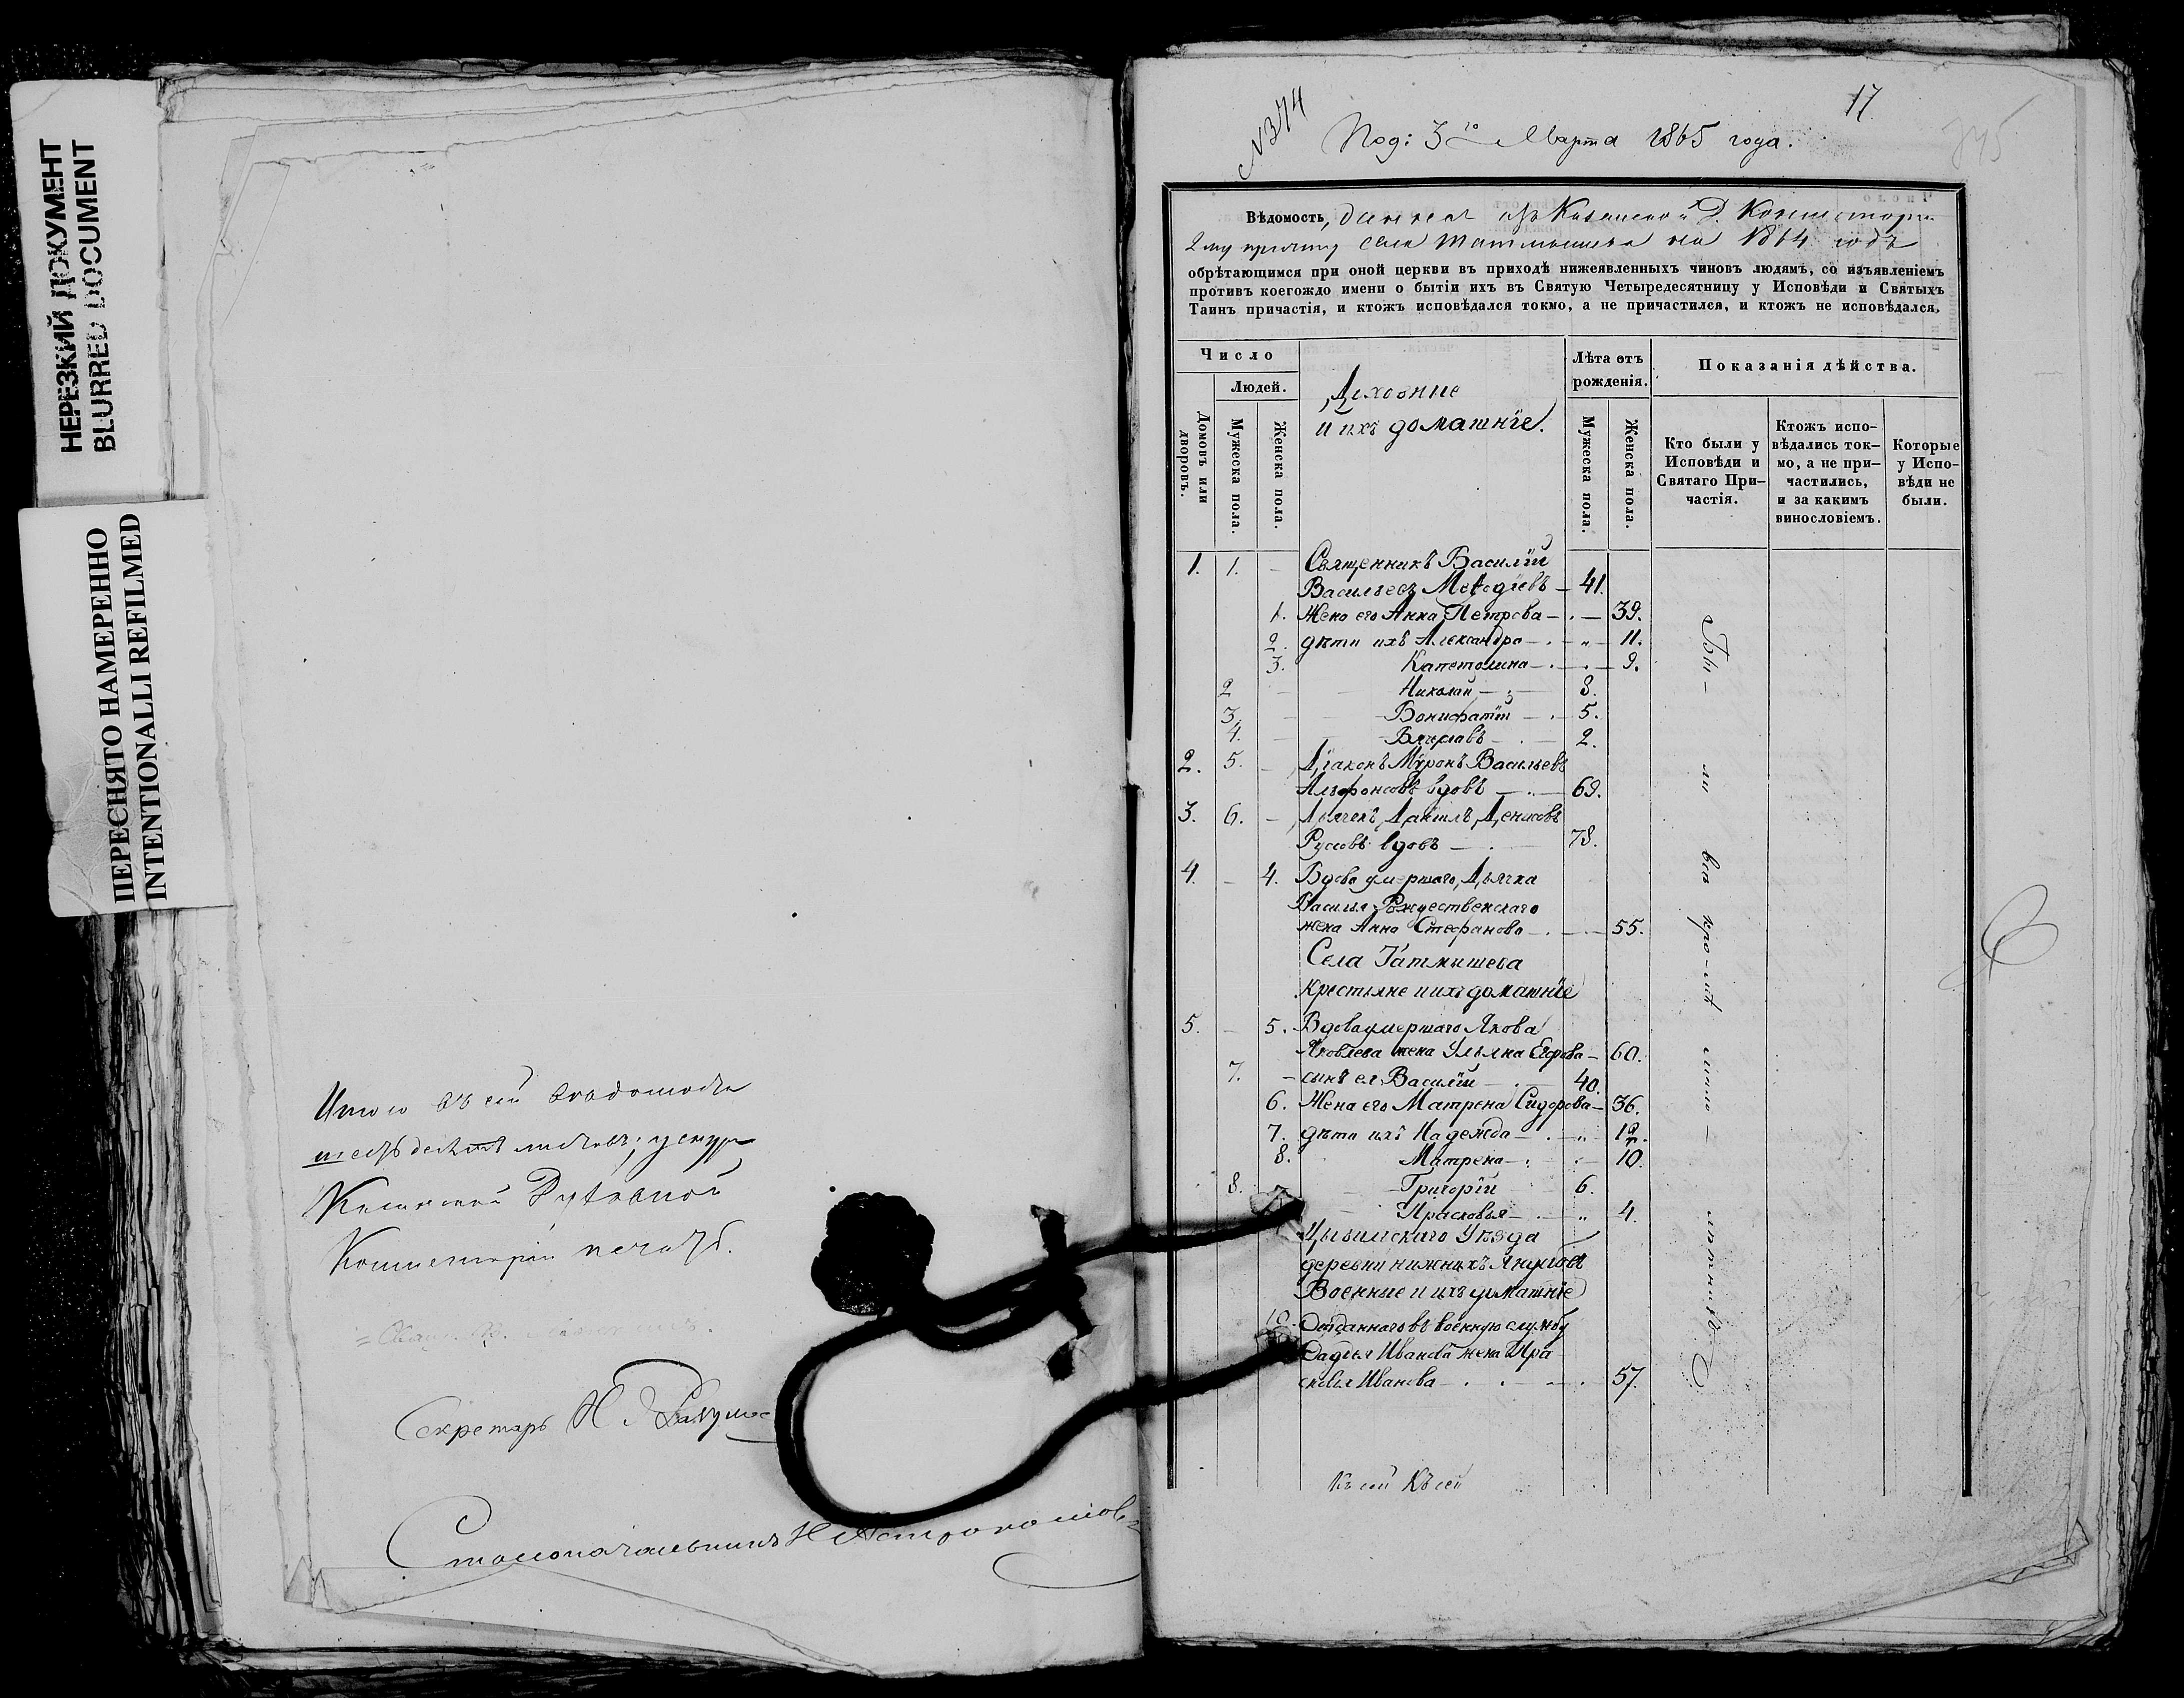 НЕРЕЗКИЙ ДОКУМЕНТ
BLURRED DOCUMENT
ПЕРЕСНЯТО НАМЕРЕННО
INTENTIONALLI REFILMED
Итого въ сей
листовъ;
Казанской Духовной
Консисторіи печать.
Секретарь Н
Столоначальникъ Н
N374
17
Под: 3го Марта 1865 года.
745
Вѣдомость, данная изъ Казанской Д. Консисторіи
2му причту села Татмышева на 1864 годъ
обрѣтающимся при оной церкви въ приходѣ нижеявленныхъ чиновъ людямъ, со изъявленіемъ
противъ коегождо имени о бытіи ихъ въ Святую Четыредесятницу у Исповѣди и Святыхъ
Таинъ причастія, и ктожъ исповѣдался токмо, а не причастился, и ктожъ не исповѣдался.
Число
Людей.
Домовъ или дворовъ.
Мужеска пола.
Женска пола.
Духовные
и ихъ домашніе.
Лѣта отъ рожденія.
Мужеска пола.
Женска пола.
Показанія дѣйства.
Кто были у Исповѣди и Святаго При-частія.
Ктожъ испо-вѣдались ток-мо, а не при-частились, и за какимъ винословіемъ.
Которые у Испо-вѣди не были.
1. 1. – Священникъ Василій
Васильевъ Меѳодіевъ – 41.
1. Жена его Анна Петрова – . – 39.
2. дѣти ихъ Александра – . – „ – 11.
3. Капетолина – . – . – 9.
2 Николай – 8.
3. Вонифатій – . – 5.
4. Вячеславъ – . – 2.
2. 5. – Діаконъ Мѵронъ Васильевъ
вдовъ – . – 69.
3. 6. – Дьячекъ Даніилъ Денисовъ
Русовъ вдовъ – . – 78.
4. – 4. Вдова умершаго Дьячка
Василья Рождественскаго
жена Анна Стефанова – . – . – 55.
Села Татмышева
Крестьяне и ихъ домашніе
5. – 5. Вдова умершаго Якова
Яковлева жена Ульяна Егорова – 60.
7. – сынъ ея Василій – . – 40.
6. Жена его Матрена Сидорова – 36.
7. дѣти ихъ Надежда – . – „ – 12.
8. Матрена – . – 10.
8. – Григорій 6.
Прасковья – . – „ 4.
Цывильскаго Уѣзда
деревни нижнихъ
Военные и ихъ домашніе
10. Отданнаго въ военную службу
Иванова жена Пра
сковья Иванова – . . – . 57.
Бы – ли всѣ кро – мѣ
Къ сей Къ сей